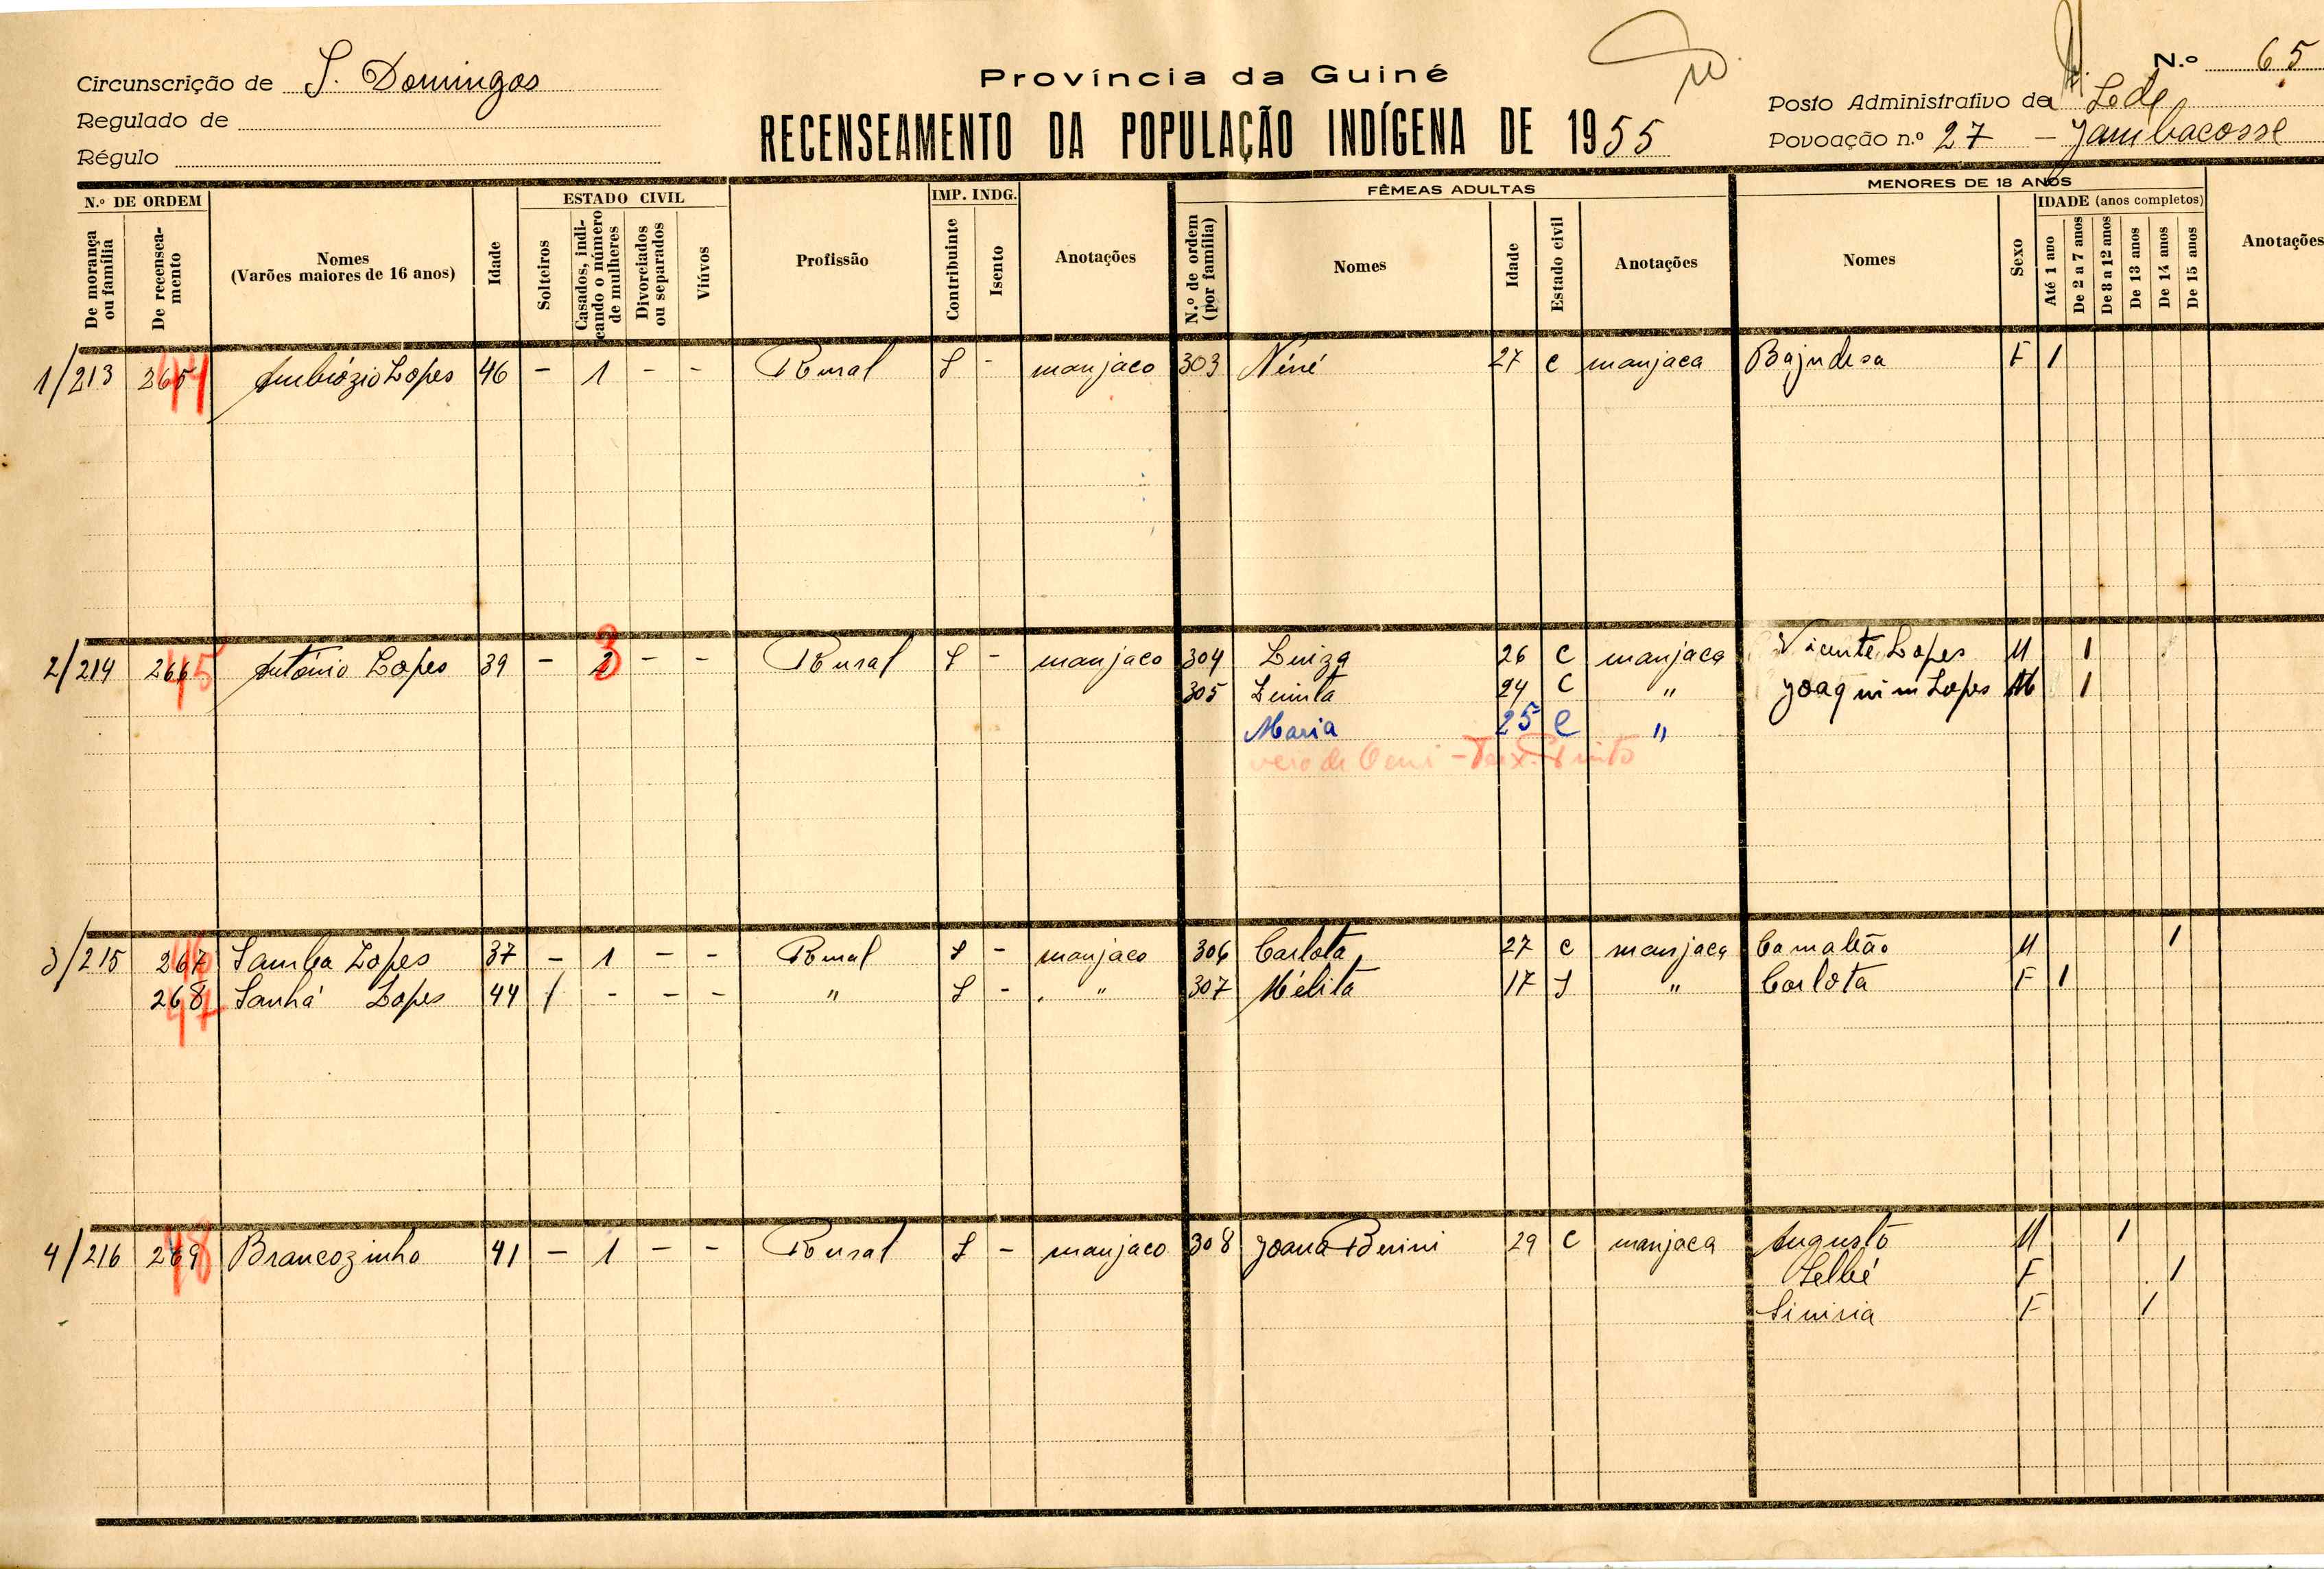 Província da Guiné
N.º 65
Circunscrição de S. Domingos
Regulado de
Régulo
RECENSEAMENTO DA POPULAÇÃO INDÍGENA DE 1955
Posto Administrativo da Sede
Povoação n.º 27 - Jambacosse
N.º DE ORDEM
De morança ou família
De recenseamento
Nomes
(Varões maiores de 16 anos)
Idade
ESTADO CIVIL
Solteiros
Casados, indicando o número de mulheres
Divorciados ou separados
Viúvos
Profissão
IMP. INDG.
Contribuinte
Isento
Anotações
FÊMEAS ADULTAS
N.º de ordem (por família)
Nomes
Idade
Estado civil
Anotações
MENORES DE 18 ANOS
Nomes
Sexo
IDADE (anos completos)
Até 1 ano
De 2 a 7 anos
De 8 a 12 anos
De 13 anos
De 14 anos
De 15 anos
Anotações
1/213 265 44 Ambrózio Lopes 46 - 1 - - Rural S - manjaco 303 Néné 27 C manjaca Bajudesa F 1
2/214 266 45 António Lopes 39 - 2 3 - - Rural S - manjaco 304 Luiza 26 C manjaca Vicente Lopes M 1
305 24 C " Joaquim Lopes M 1
Maria 25 C "
3/215 267 46 Samba Lopes 37 - 1 - - Rural S - manjaco 306 Carlota 27 C manjaca Camaleão M 1
268 47 Sanhá Lopes 44 1 - - - " S - " 307 Mélita 17 S " Carlota F 1
4/216 269 48 Brancozinho 41 - 1 - - Rural S - manjaco 308 Joana Benini 29 C manjaca Augusto M 1
F 1
F 1